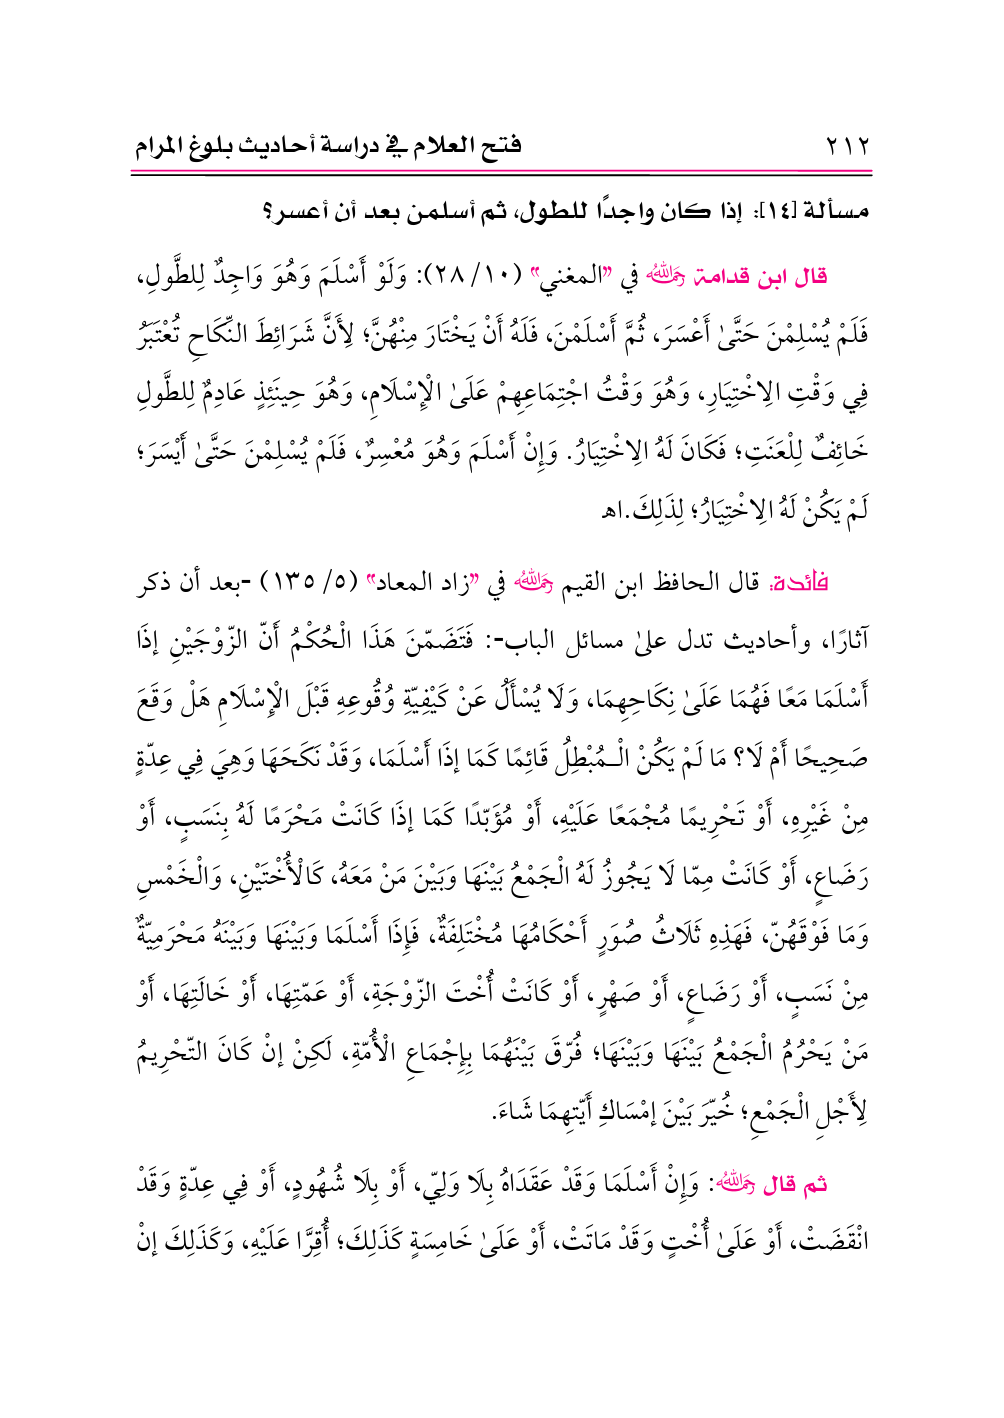 ٢١٢ فتح العلام في دراسة أحاديث بلوغ المرام
مسألة [١٤]: إذا كان واجدًا للطول، ثم أسلمن بعد أن أعسر؟
قال ابن قدامة رَحِمَهُ اللهُ في "المغني" (١٠/ ٢٨): وَلَوْ أَسْلَمَ وَهُوَ وَاجِدٌ لِلطَّولِ،
فَلَمْ يُسْلِمْنَ حَتَّىٰ أَعْسَرَ، ثُمَّ أَسْلَمْنَ، فَلَهُ أَنْ يَخْتَارَ مِنْهُنَّ؛ لِأَنَّ شَرَائِطَ النِّكَاحِ تُعْتَبَرُ
فِي وَقْتِ الِاخْتِيَارِ، وَهُوَ وَقْتُ اجْتِمَاعِهِمْ عَلَىٰ الْإِسْلَامِ، وَهُوَ حِينَئِذٍ عَادِمٌ لِلطَّولِ
خَائِفٌ لِلْعَنَتِ؛ فَكَانَ لَهُ الِاخْتِيَارُ. وَإِنْ أَسْلَمَ وَهُوَ مُعْسِرٌ، فَلَمْ يُسْلِمْنَ حَتَّىٰ أَيْسَرَ؛
لَمْ يَكُنْ لَهُ الِاخْتِيَارُ؛ لِذَلِكَ.اهـ
فائدة: قال الحافظ ابن القيم رَحِمَهُ اللهُ في "زاد المعاد" (٥/ ١٣٥) -بعد أن ذكر
آثارًا، وأحاديث تدل علىٰ مسائل الباب-: فَتَضَمّنَ هَذَا الْحُكْمُ أَنّ الزّوْجَيْنِ إذَا
أَسْلَمَا مَعًا فَهُمَا عَلَىٰ نِكَاحِهِمَا، وَلَا يُسْأَلُ عَنْ كَيْفِيّةِ وُقُوعِهِ قَبْلَ الْإِسْلَامِ هَلْ وَقَعَ
صَحِيحًا أَمْ لَا؟ مَا لَمْ يَكُنْ الْـمُبْطِلُ قَائِمًا كَمَا إذَا أَسْلَمَا، وَقَدْ نَكَحَهَا وَهِيَ فِي عِدّةٍ
مِنْ غَيْرِهِ، أَوْ تَحْرِيمًا مُجْمَعًا عَلَيْهِ، أَوْ مُؤَبّدًا كَمَا إذَا كَانَتْ مَحْرَمًا لَهُ بِنَسَبٍ، أَوْ
رَضَاعٍ، أَوْ كَانَتْ مِمّا لَا يَجُوزُ لَهُ الْجَمْعُ بَيْنَهَا وَبَيْنَ مَنْ مَعَهُ، كَالْأُخْتَيْنِ، وَالْخَمْسِ
وَمَا فَوْقَهُنّ، فَهَذِهِ ثَلَاثُ صُوَرٍ أَحْكَامُهَا مُخْتَلِفَةٌ، فَإِذَا أَسْلَمَا وَبَيْنَهَا وَبَيْنَهُ مَحْرَمِيّةٌ
مِنْ نَسَبٍ، أَوْ رَضَاعٍ، أَوْ صَهْرٍ، أَوْ كَانَتْ أُخْتَ الزّوْجَةِ، أَوْ عَمّتِهَا، أَوْ خَالَتِهَا، أَوْ
مَنْ يَحْرُمُ الْجَمْعُ بَيْنَهَا وَبَيْنَهَا؛ فُرّقَ بَيْنَهُمَا بِإِجْمَاعِ الْأُمّةِ، لَكِنْ إنْ كَانَ التّحْرِيمُ
لِأَجْلِ الْجَمْعِ؛ خُيّرَ بَيْنَ إمْسَاكِ أَيّتهِمَا شَاءَ.
ثم قال رَحِمَهُ اللهُ: وَإِنْ أَسْلَمَا وَقَدْ عَقَدَاهُ بِلَا وَلِيّ، أَوْ بِلَا شُهُودٍ، أَوْ فِي عِدّةٍ وَقَدْ
انْقَضَتْ، أَوْ عَلَىٰ أُخْتٍ وَقَدْ مَاتَتْ، أَوْ عَلَىٰ خَامِسَةٍ كَذَلِكَ؛ أُقِرَّا عَلَيْهِ، وَكَذَلِكَ إنْ